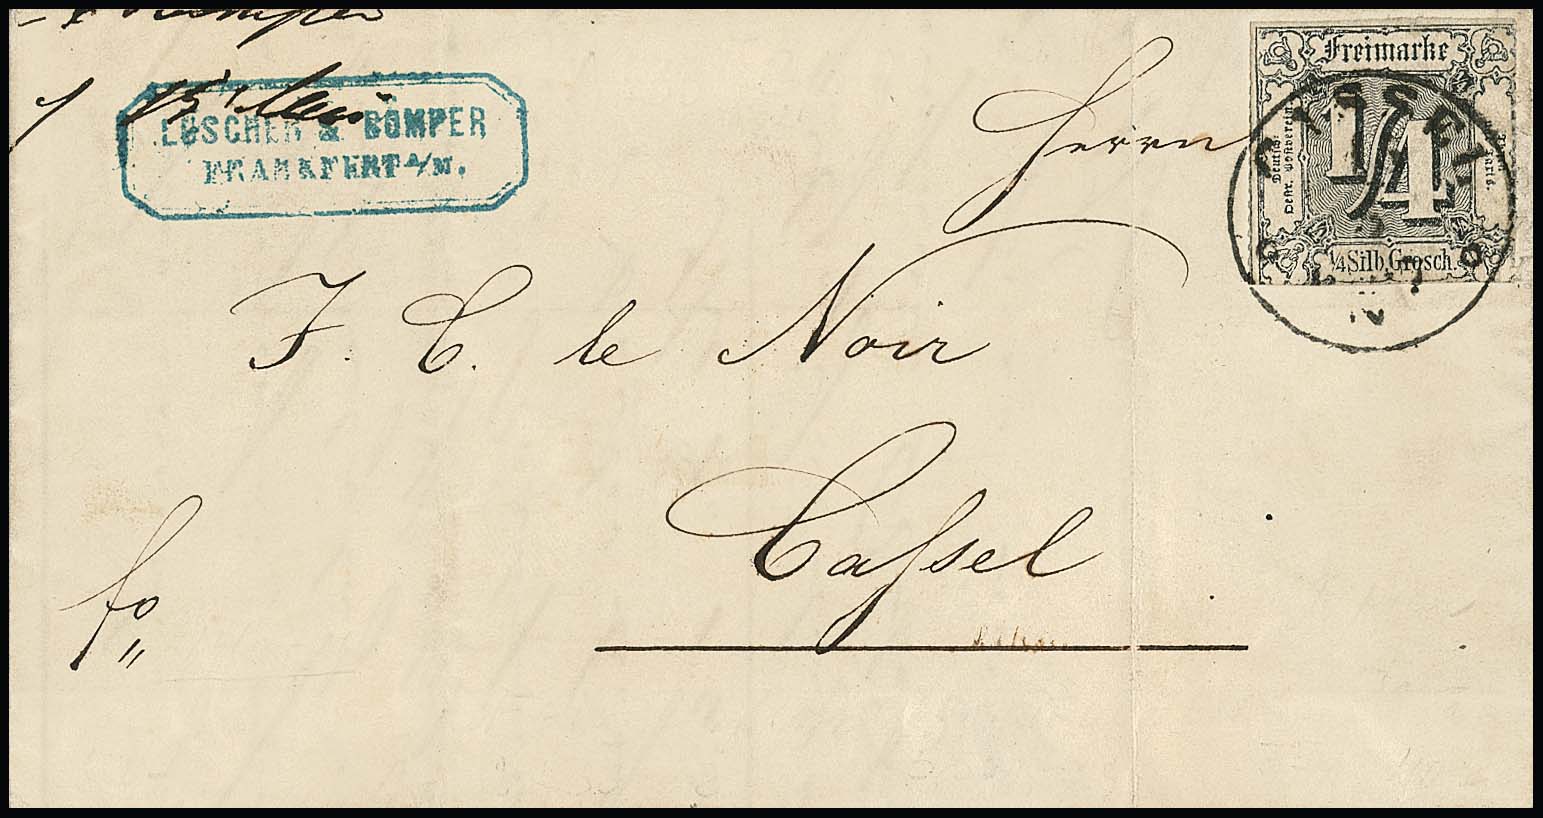 15' Mai
LUSCHER & BÖMPER
FRANKFURT A/M.
Herrn
J. C. le Noir
Cassel
fo
Freimarke
Deutsch-
Oestr. Postverein
1/4
Thurn
Taxis.
1/4 Silb. Grosch.
CASSEL